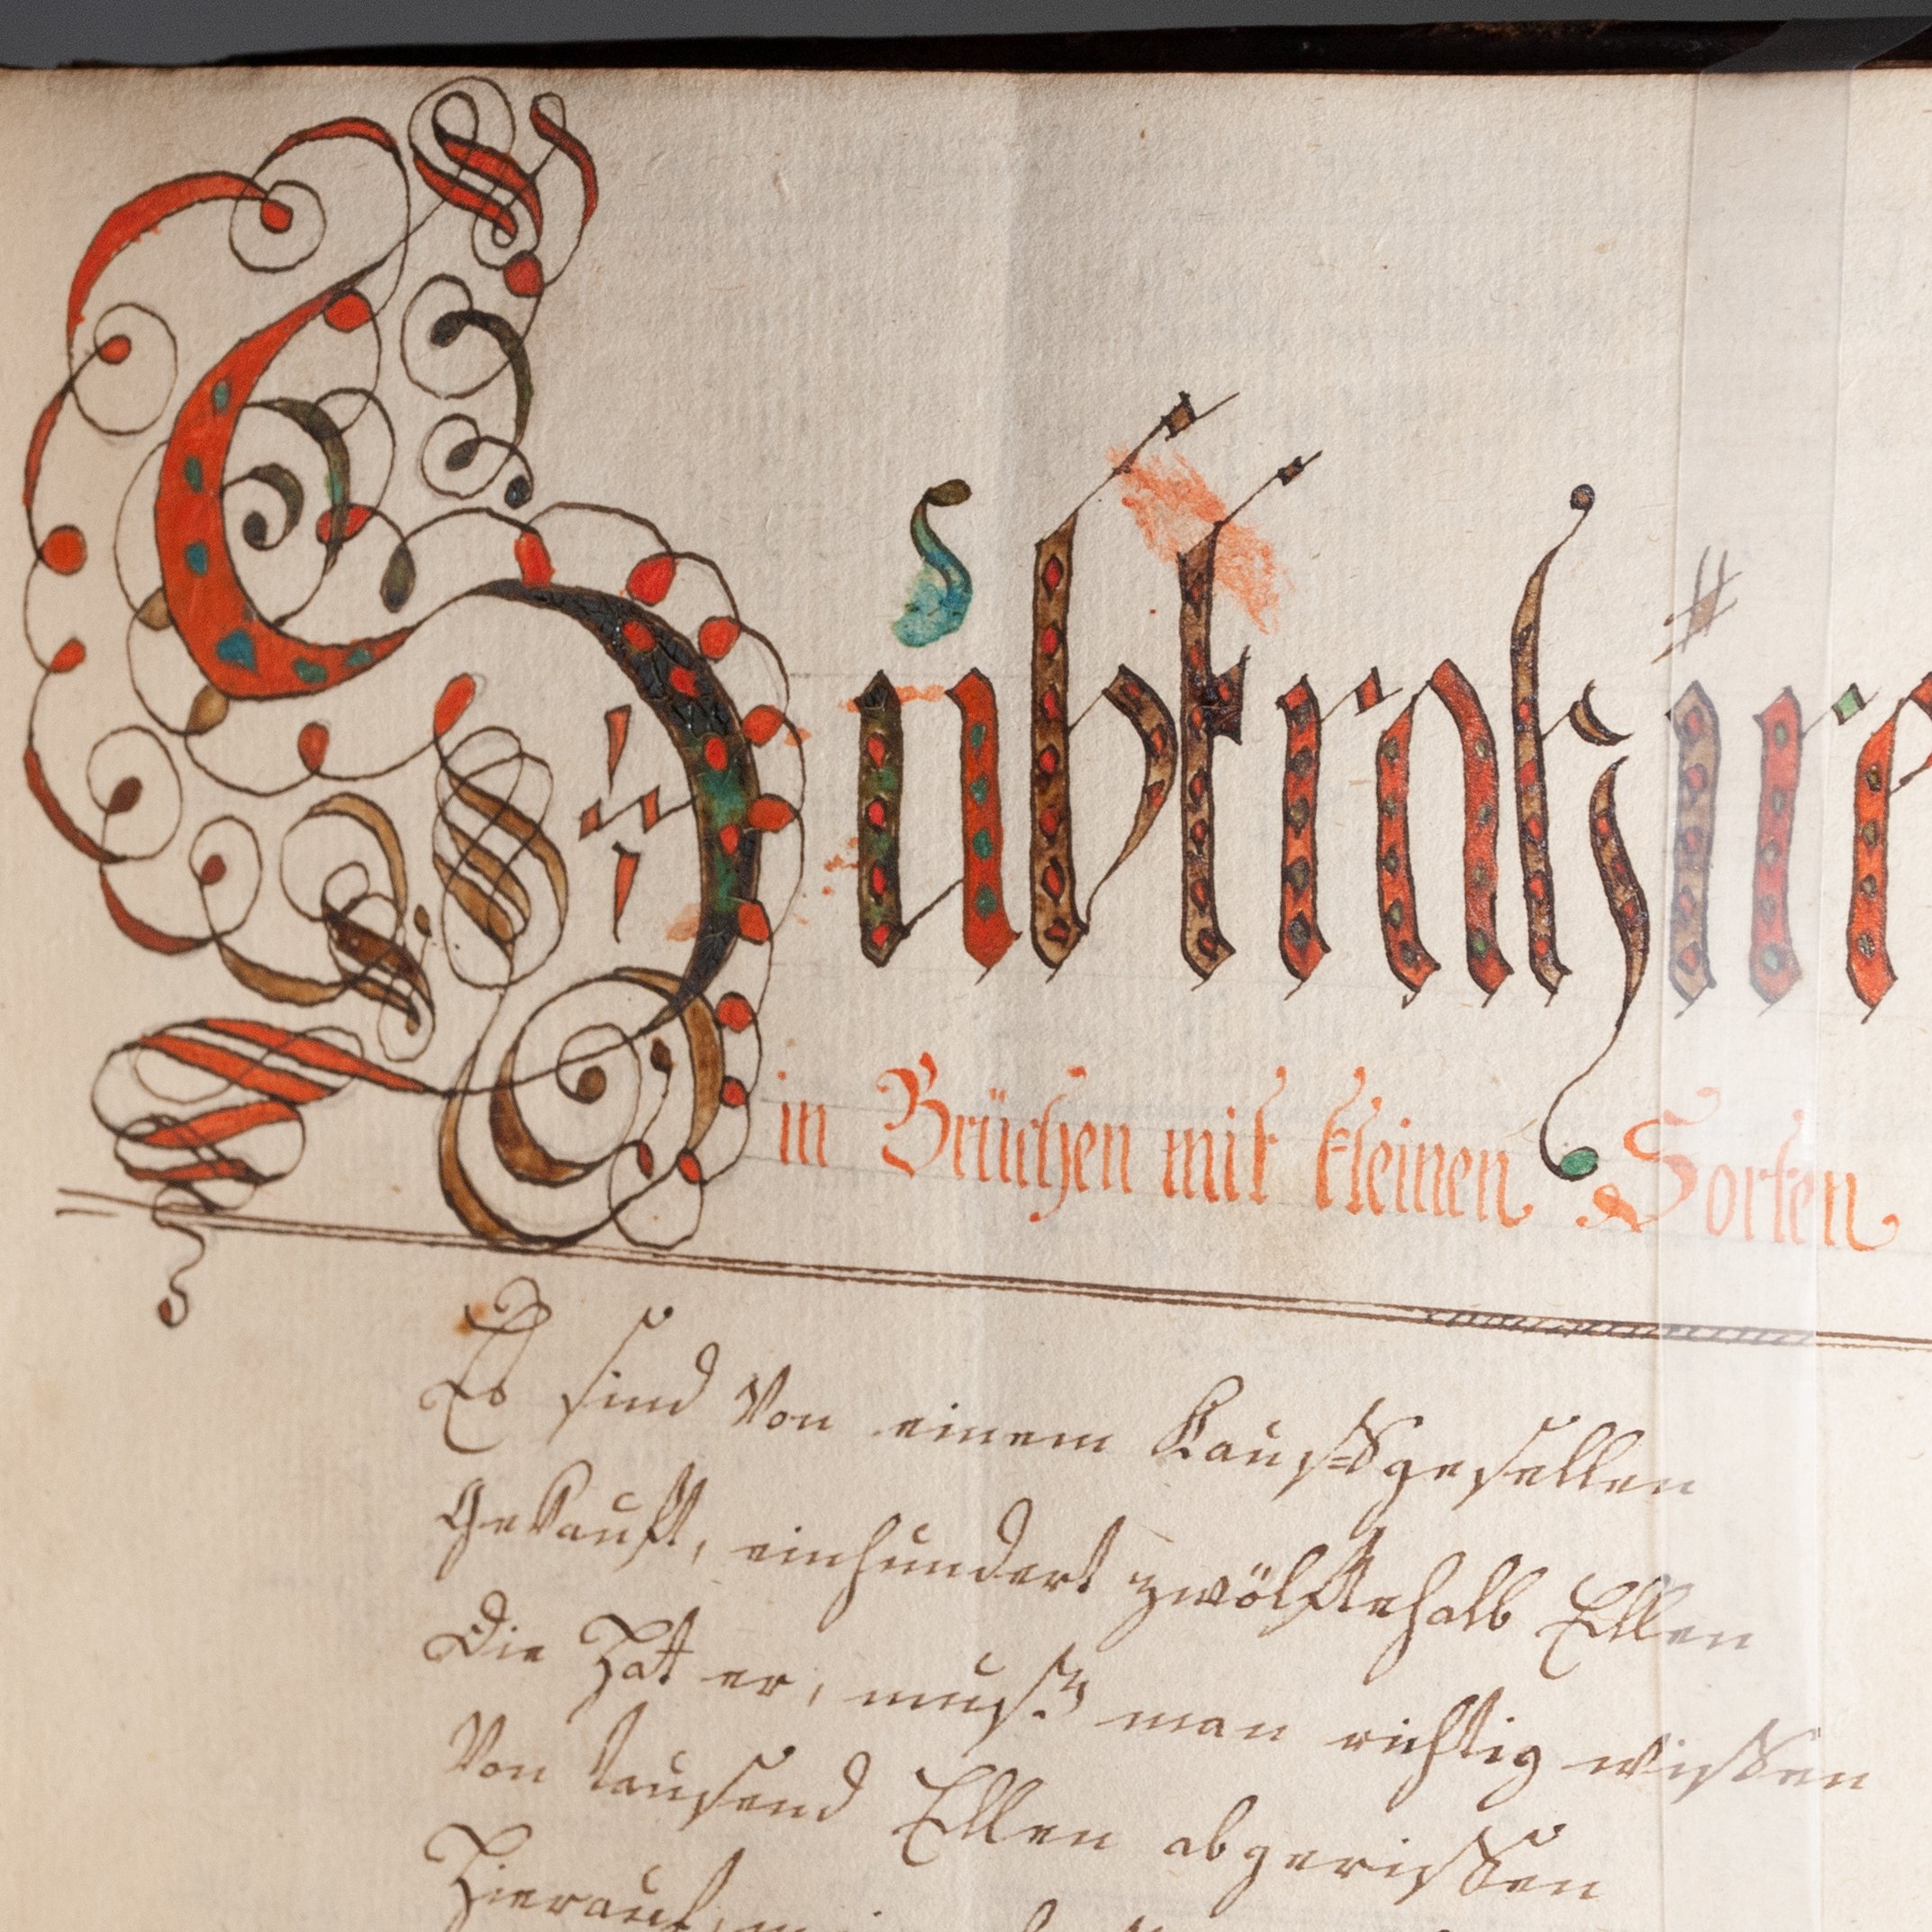 Subtrahire
in Brüchen mit kleinen Sorten
Es sind Von einem Kauffsgesellen
Gekaufft, einhundert zwölfftehalb Ellen
Die Hat er, muß man richtig wißen
Von tausend Ellen abgerißen
Hierauf,